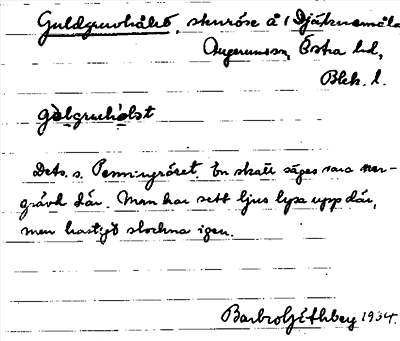 Guldgruvhålet, stenröse å 1 Djäknamåla
Augerumssn, Östra hd,
Blek. l.
gòlgruhòlst
Dets. s. Penningröset. En skatt säges vara ner-
grävd där. Man har sett ljus lysa upp där,
men hastigt slockna igen.
Barbro 1934.